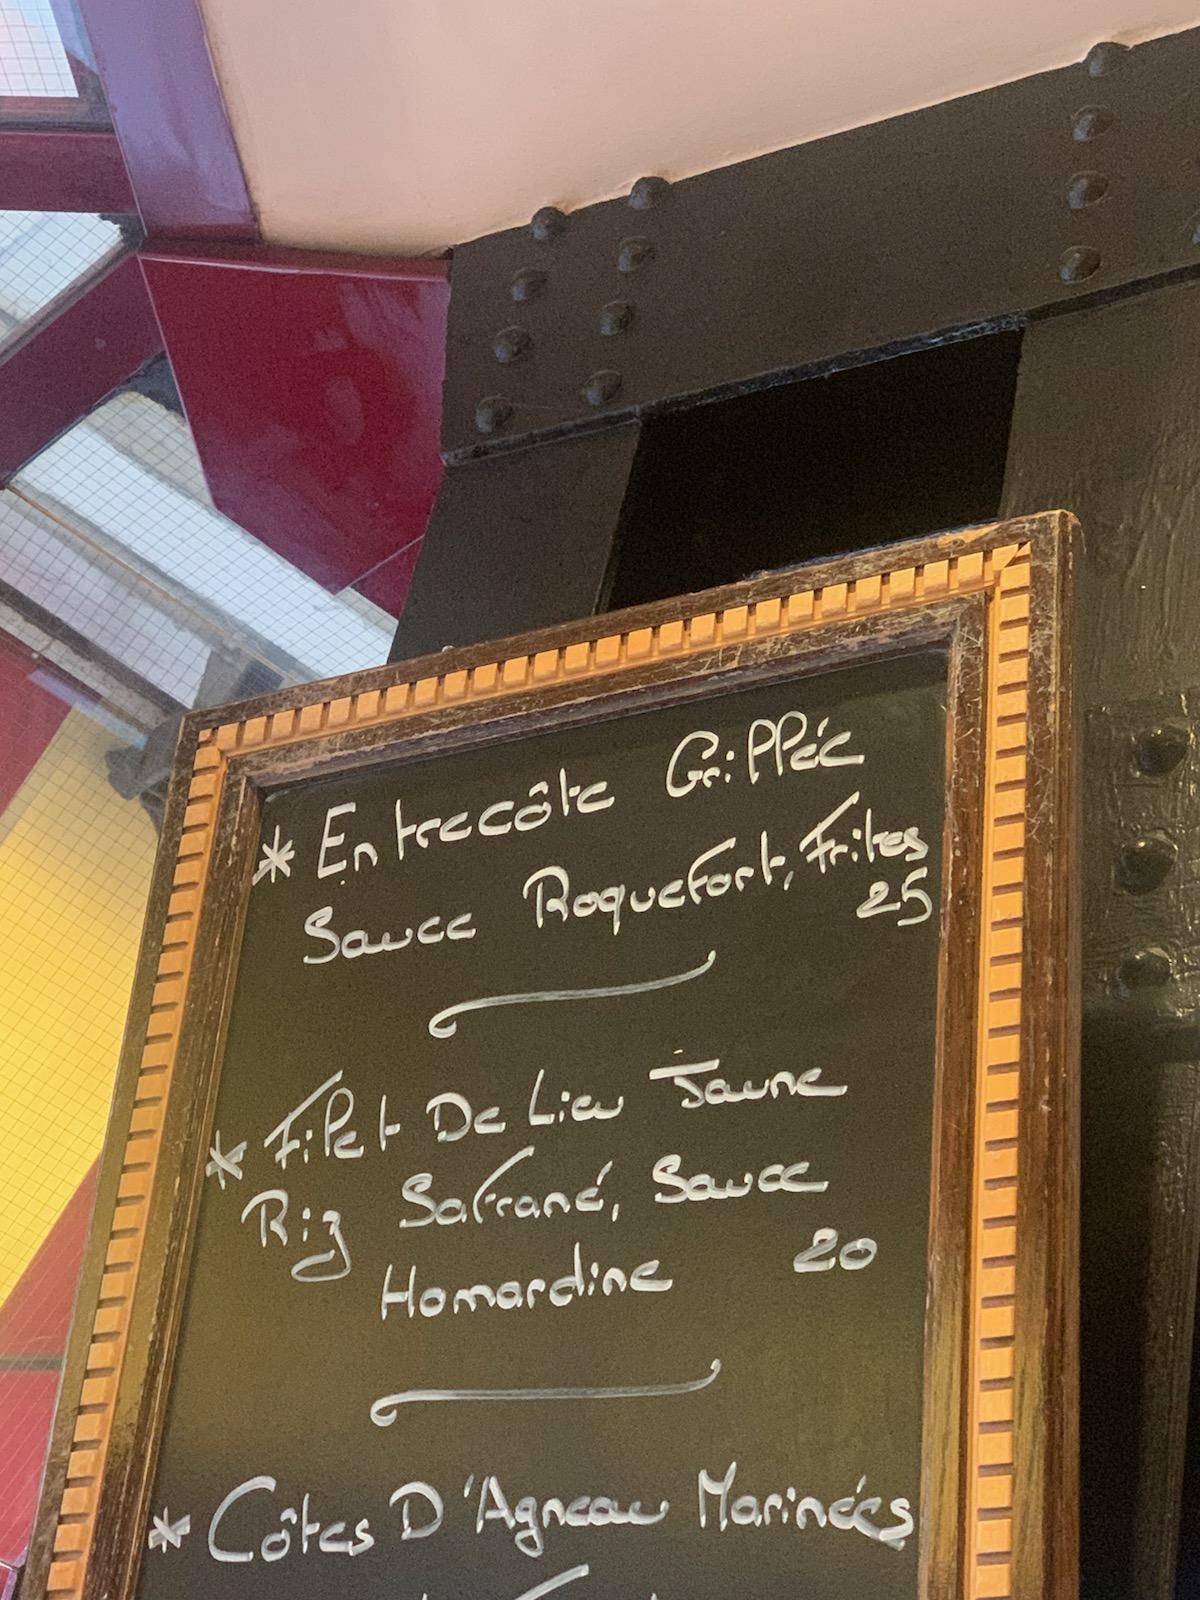 * Entrecôte Grillée
Sauce Roquefort, Frites
25
* Filet De Lieu Jaune
Riz Safrané, Sauce
Homardine 20
* Côtes D'Agneau Marinées